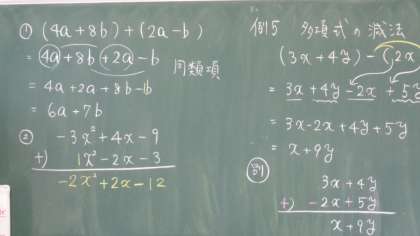 ① (4a+8b)+(2a-b)
= 4a+8b+2a-b
同類項
= 4a+2a+8b-b
= 6a+7b
② -3x²+4x-9
+) 1x²-2x-3
-2x²+2x-12
例15 多項式の減法
(3x+4y)-(2x
= 3x+4y-2x+5y
= 3x-2x+4y+5y
= x+9y
別
3x+4y
+) -2x+5y
x+9y